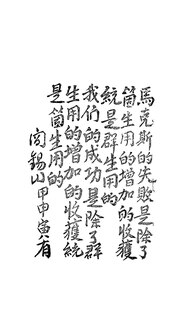 馬克斯的失敗是除了
箇生用的增加的收獲
統是群生用的
我們的成功是除了群
生用的增加的收獲統
是箇生用的
閻錫山甲申寅